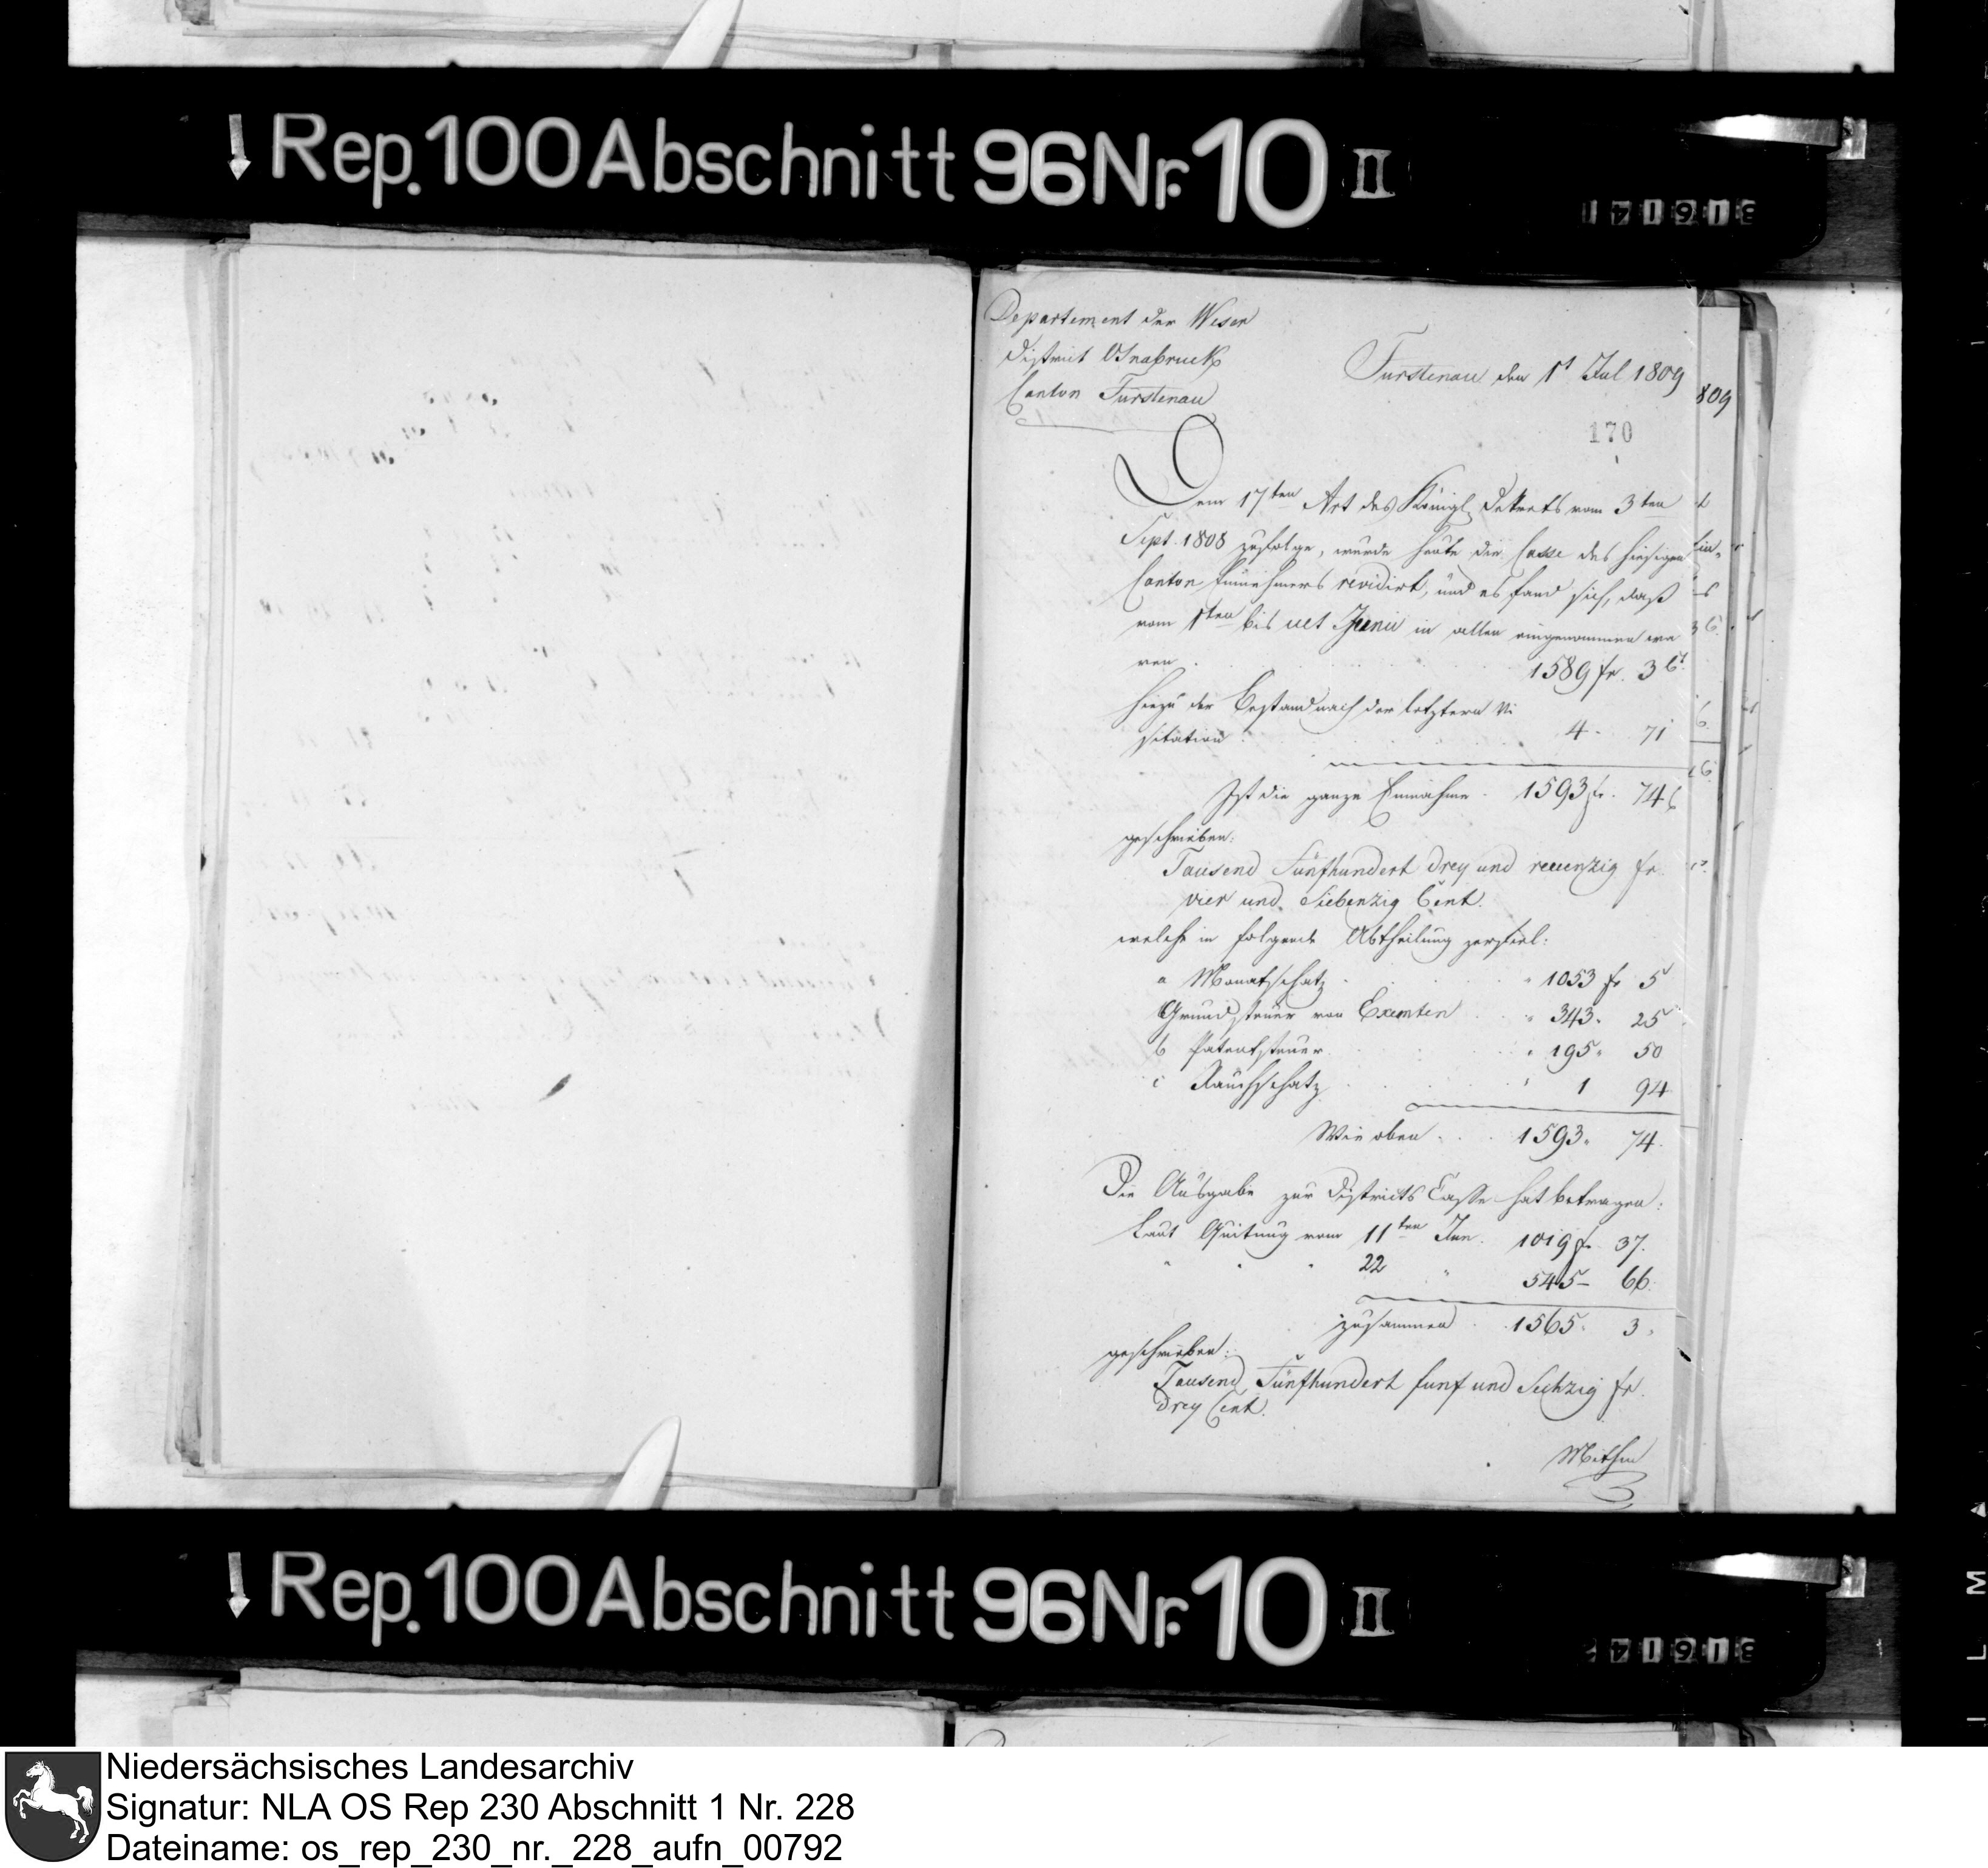 Rep. 100 Abschnitt 96 Nr. 10 II
Departement der Weser
District Osnabruck
Canton Furstenau
Furstenau den 1t Jul 1809
809
170
Dem 17ten Art des Königl. Dekrets vom 3ten
Sept. 1808 zufolge, wurde heute die Casse des hiesigen
Canton Einnehmers revidirt, und es fand sich, daß
vom 1ten bis ult Junii in allen eingenommen wa
ren 1589 fr. 3 Ct
hiezu der Bestand nach der letztern Vi
sitation 4 - 71
Ist die ganze Einnahme . 1593 fr. 74 C
geschrieben:
Tausend Fünfhundert Drey und neuenzig fr.
vier und Siebenzig Cent.
welche in folgende Abtheilung zerfiel:
a Monatschatz 1053 fr 5
Grundsteuer von Exemten 343. 25
b Patentsteuer 195. 50
c Rauchschatz 1 94
Wie oben . . . 1593. 74.
Die Ausgabe zur Districts Casse hat betragen:
Laut Quitung vom 11ten Jun. 1019 fr. 37.
" " " 22 " 545 - 66.
zusammen . 1565. 3.
geschrieben:
Tausend Fünfhundert funf und Sechzig fr.
Drey Cent.
Mithin
Rep. 100 Abschnitt 96 Nr. 10 II
Niedersächsisches Landesarchiv
Signatur: NLA OS Rep 230 Abschnitt 1 Nr. 228
Dateiname: os_rep_230_nr._228_aufn_00792